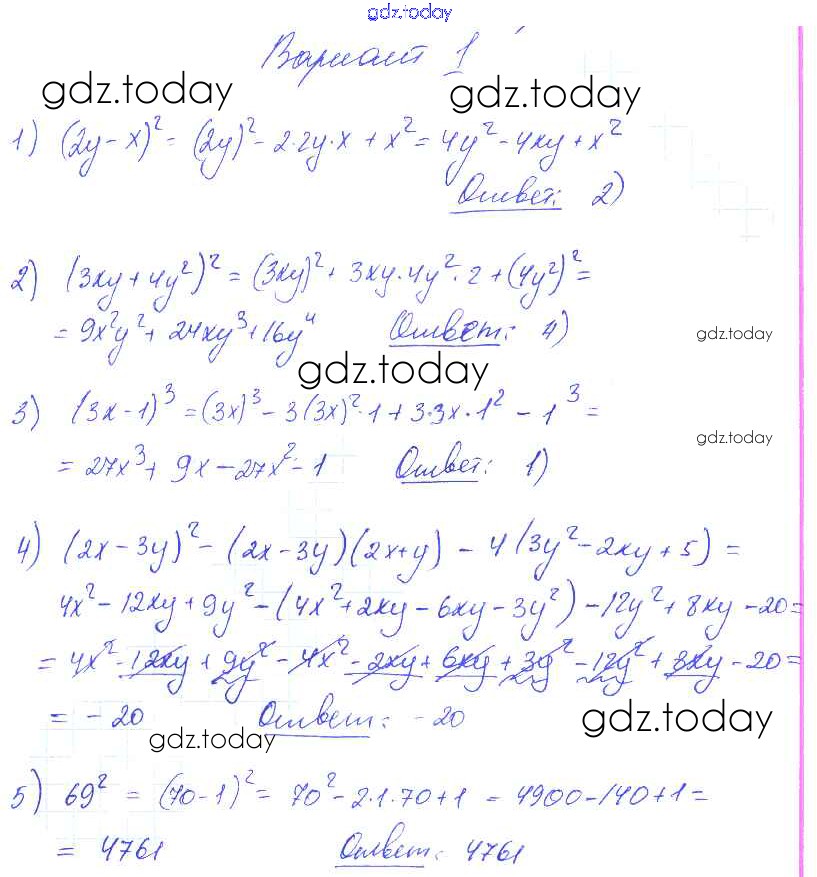 gdz.today
Вариант 1
gdz.today gdz.today
1) (2y - x)² = (2y)² - 2·2y·x + x² = 4y² - 4xy + x²
Ответ: 2)
2) (3xy + 4y²)² = (3xy)² + 3xy·4y²·2 + (4y²)² =
= 9x²y² + 24xy³ + 16y⁴ Ответ: 4)
gdz.today
gdz.today
3) (3x - 1)³ = (3x)³ - 3(3x)²·1 + 3·3x·1² - 1³ =
gdz.today
= 27x³ + 9x - 27x² - 1 Ответ: 1)
4) (2x - 3y)² - (2x - 3y)(2x + y) - 4(3y² - 2xy + 5) =
4x² - 12xy + 9y² - (4x² + 2xy - 6xy - 3y²) - 12y² + 8xy - 20 =
= 4x² - 12xy + 9y² - 4x² - 2xy + 6xy + 3y² - 12y² + 8xy - 20 =
= - 20 Ответ: - 20
gdz.today
gdz.today
5) 69² = (70 - 1)² = 70² - 2·1·70 + 1 = 4900 - 140 + 1 =
= 4761 Ответ: 4761